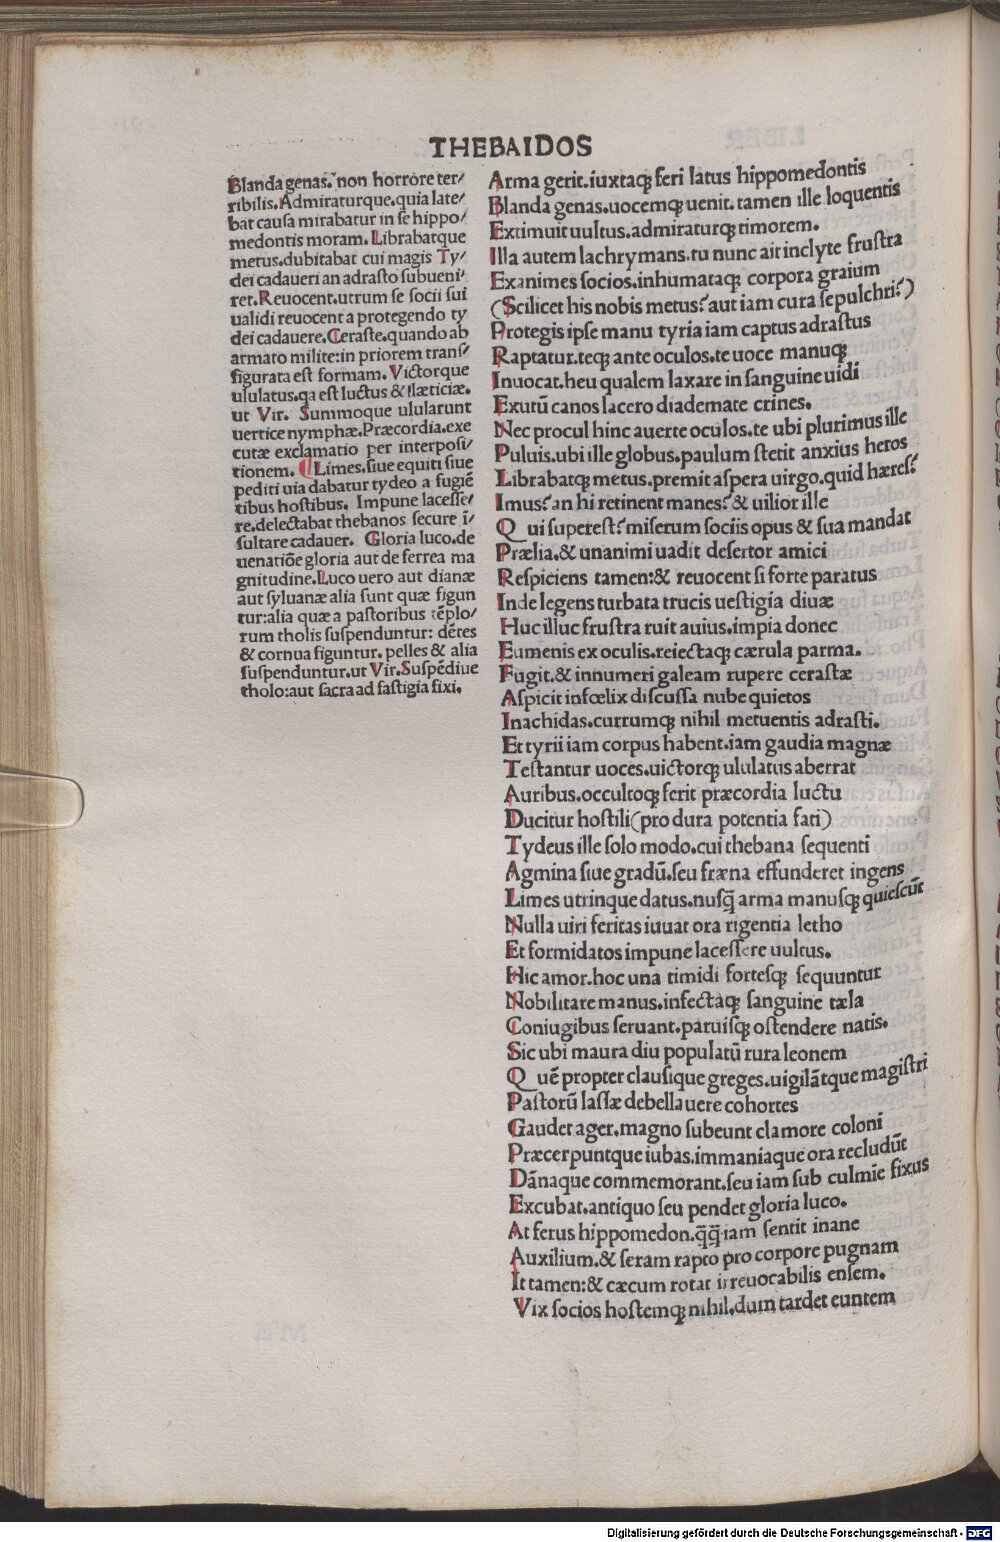 THEBAIDOS
Blanda genas. non horrore ter/
ribilis. Admiraturque. quia late/
bat causa mirabatur in se hippo/
medontis moram. Librabatque
metus. dubitabat cui magis Ty/
dei cadaueri an adrasto subueni/
ret. Reuocent. utrum se socii sui
ualidi reuocent a protegendo ty
dei cadauere. Ceraste. quando ab
armato milite: in priorem trans/
figurata est formam. Victorque
ululatus. qa est luctus & læticiæ.
ut Vir. Summoque ulularunt
uertice nymphæ. Præcordia. exe
cutæ exclamatio per interposi/
tionem. Limes. siue equiti siue
pediti uia dabatur tydeo a fugiē
tibus hostibus. Impune lacesse/
re. delectabat thebanos secure ī/
sultare cadauer. Gloria luco. de
uenatiōe gloria aut de ferrea ma
gnitudine. Luco uero aut dianæ
aut syluanæ alia sunt quæ figun
tur: alia quæ a pastoribus tēplo/
rum tholis suspenduntur: dētes
& cornua figuntur. pelles & alia
suspenduntur. ut Vir. Suspēdiue
tholo: aut sacra ad fastigia fixi.
Arma gerit. iuxtaqꝫ feri latus hippomedontis
Blanda genas. uocemqꝫ uenit. tamen ille loquentis
Extimuit uultus. admiraturqꝫ timorem.
Illa autem lachrymans. tu nunc ait inclyte frustra
Exanimes socios. inhumataqꝫ corpora graium
(Scilicet his nobis metus? aut iam cura sepulchri?)
Protegis ipse manu tyria iam captus adrastus
Raptatur. teqꝫ ante oculos. te uoce manuqꝫ
Inuocat. heu qualem laxare in sanguine uidi
Exutū canos lacero diademate crines.
Nec procul hinc auerte oculos. te ubi plurimus ille
Puluis. ubi ille globus. paulum stetit anxius heros
Librabatqꝫ metus. premit aspera uirgo. quid hæres?
Imus? an hi retinent manes? & uilior ille
Qui superest? miserum sociis opus & sua mandat
Prælia. & unanimi uadit desertor amici
Respiciens tamen: & reuocent si forte paratus
Inde legens turbata trucis uestigia diuæ
Huc illuc frustra ruit auius. impia donec
Eumenis ex oculis. reiectaqꝫ cærula parma.
Fugit. & innumeri galeam rupere cerastæ
Aspicit infœlix discussa nube quietos
Inachidas. currumqꝫ nihil metuentis adrasti.
Et tyrii iam corpus habent. iam gaudia magnæ
Testantur uoces. uictorqꝫ ululatus aberrat
Auribus. occultoqꝫ ferit præcordia luctu
Ducitur hostili (pro dura potentia fati)
Tydeus ille solo modo. cui thebana sequenti
Agmina siue gradū. seu fræna effunderet ingens
Limes utrinque datus. nusq̄ arma manusqꝫ quiescūt
Nulla uiri feritas iuuat ora rigentia letho
Et formidatos impune lacessere uultus.
Hic amor. hoc una timidi fortesqꝫ sequuntur
Nobilitare manus. infectaqꝫ sanguine tæla
Coniugibus seruant. paruisqꝫ ostendere natis.
Sic ubi maura diu populatū rura leonem
Quē propter clausique greges. uigilātque magistri
Pastorū lassæ debellauere cohortes
Gaudet ager. magno subeunt clamore coloni
Præcerpuntque iubas. immaniaque ora recludūt
Dānaque commemorant. seu iam sub culmīe fixus
Excubat. antiquo seu pendet gloria luco.
At ferus hippomedon. q̄q̄ iam sentit inane
Auxilium. & seram rapto pro corpore pugnam
It tamen: & cæcum rotat irreuocabilis ensem.
Vix socios hostemqꝫ nihil. dum tardet euntem
Digitalisierung gefördert durch die Deutsche Forschungsgemeinschaft - DFG